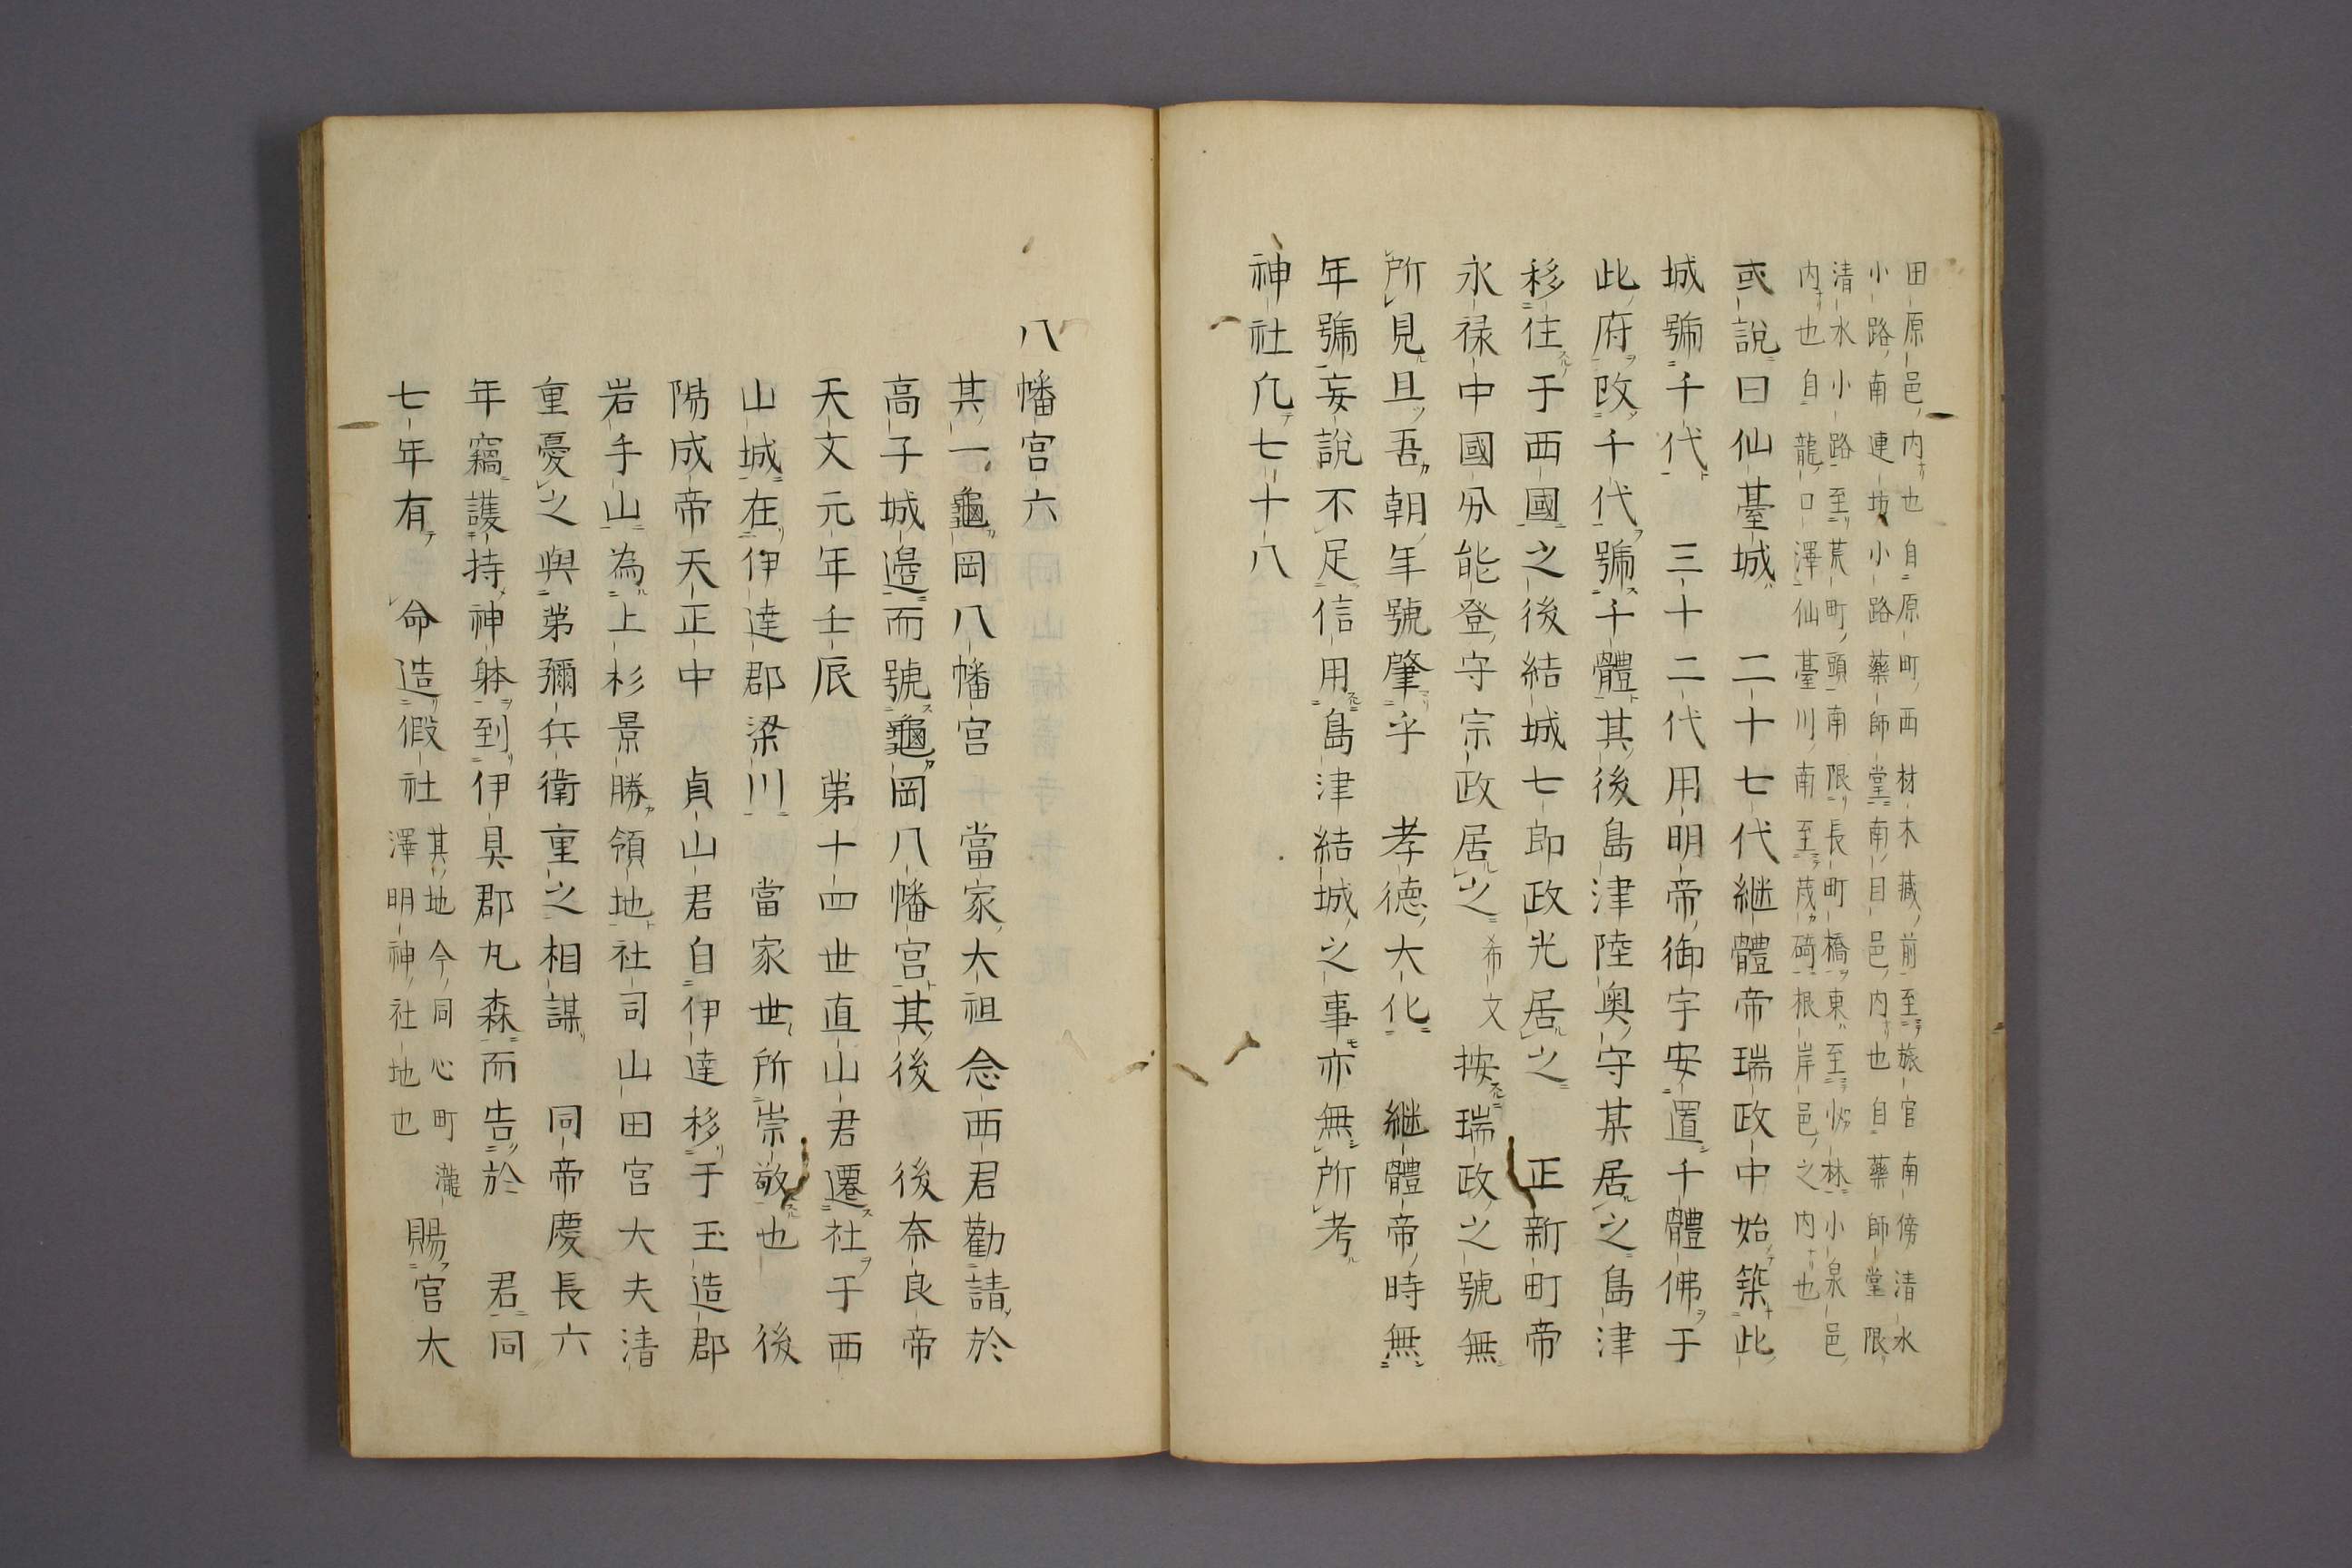 田原邑内也自原町西材木藏前至旅官南傍清水
小路南連坊小路藥師堂南目邑内也自藥師堂限
清水小路至荒町頭南限長町橋東至林小泉邑
内也自龍口澤仙䑓川南至茂𥔎根岸邑之内也
或說曰仙䑓城二十七代継體帝瑞政中始築此
城號千代三十二代用明帝御宇安置千體佛于
此府改千代號千體其後島津陸奥守某居之島津
移住于西國之後結城七郎政光居之正新町帝
永禄中國分能登守宗政居之希文按瑞政之號無
所見且吾朝年號肇乎孝德大化継體帝時無
年號妄說不足信用島津結城之事亦無所考
神社凢七十八
八幡宮六
其一龜岡八幡宮當家大祖念西君勸請於
高子城邉而號龜岡八幡宮其後後奈良帝
天文元年壬辰苐十四世直山君遷社于西
山城在伊達郡梁川當家世所崇敬也後
陽成帝天正中貞山君自伊達移于玉造郡
岩手山為上杉景勝領地社司山田宮大夫清
重憂之與苐彌兵衛重之相謀同帝慶長六
年竊護持神躰到伊具郡丸森而告於君同
七年有命造假社其地今同心町瀧澤明神社地也賜宮大